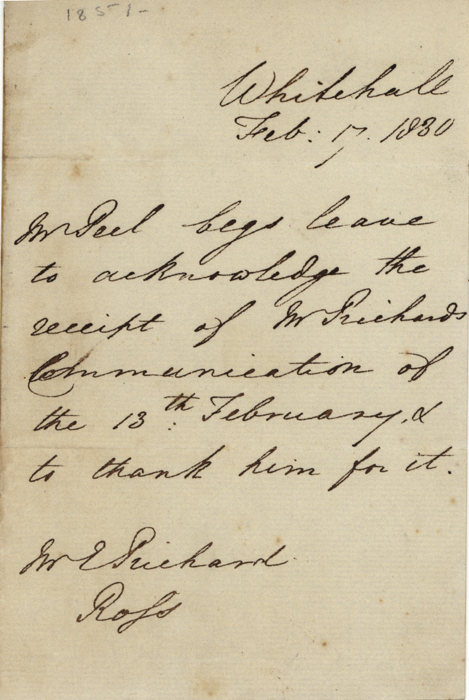 1851-
Whitehall
Feb: 17. 1830
Mr Peel begs leave
to acknowledge the
receipt of Mr Prichards
Communication of
the 13th: February, &
to thank him for it.
Mr E Prichard
Ross